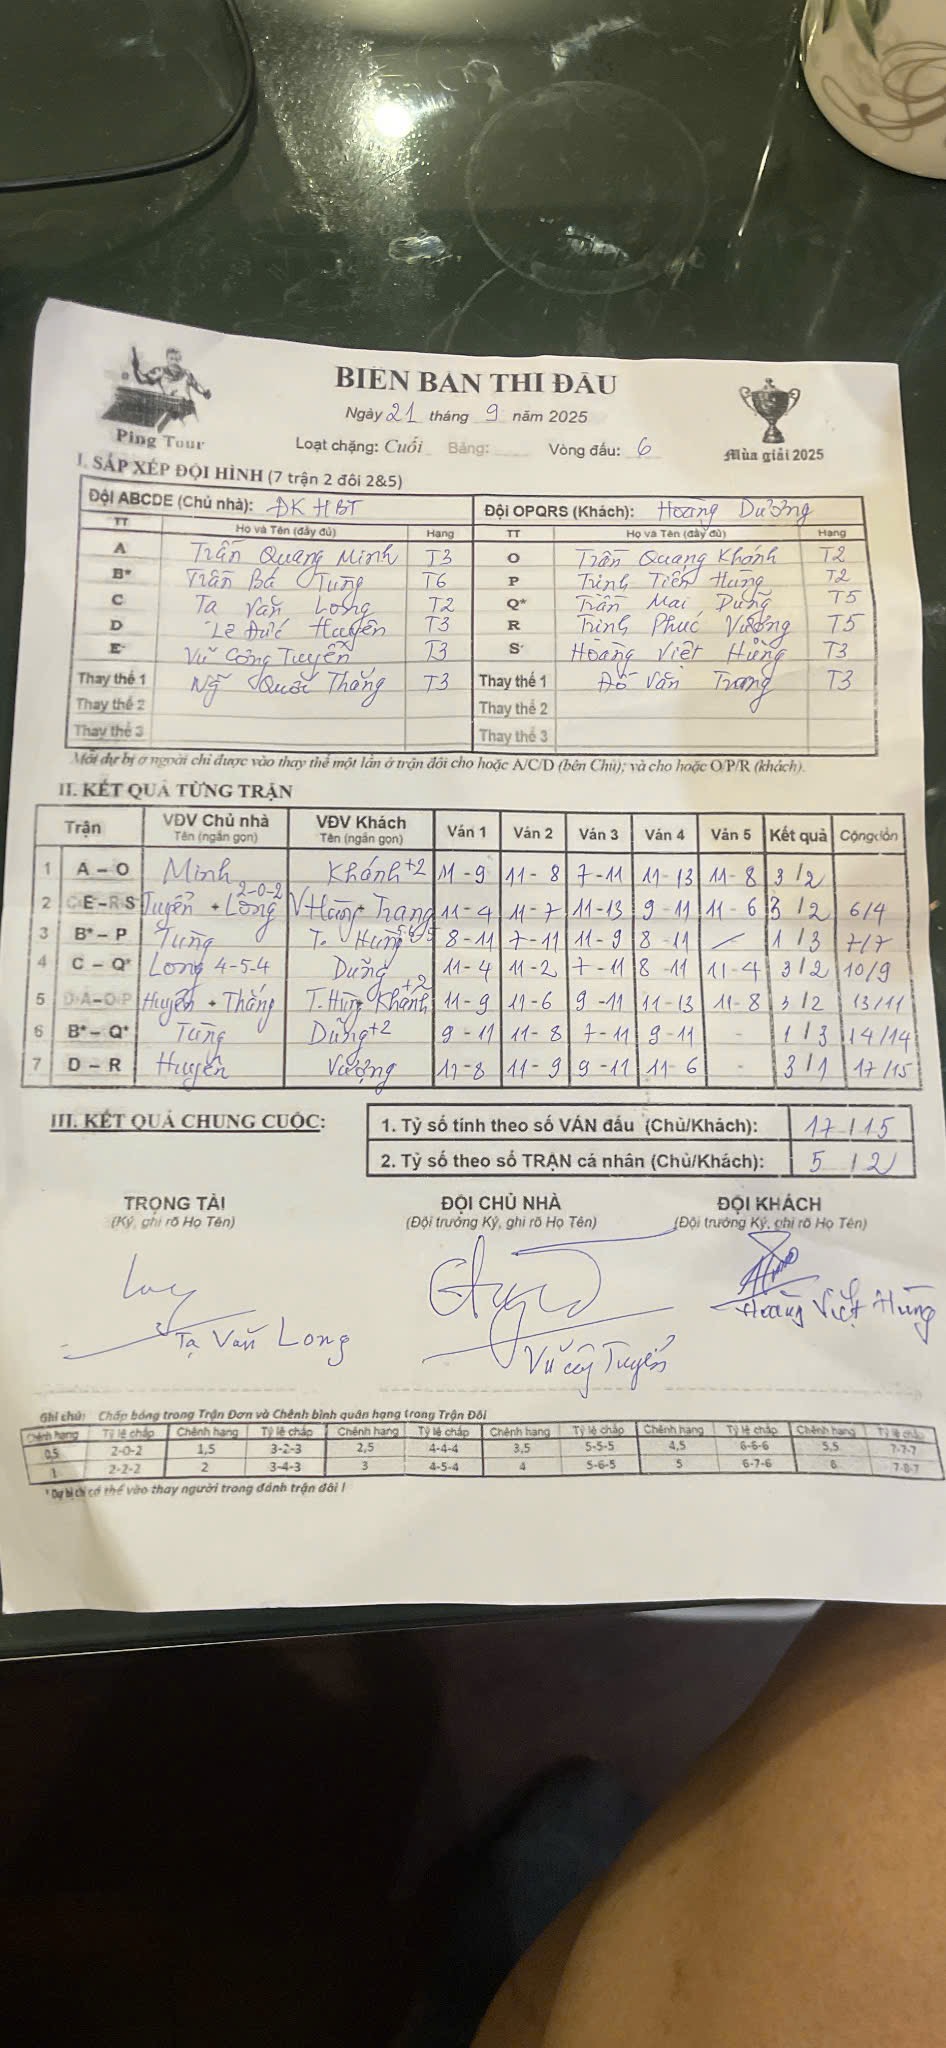 BIÊN BẢN THI ĐẤU
Ngày 21 tháng 9 năm 2025
Ping Tour
Loạt chặng: Cuối Bảng: Vòng đấu: 6
Mùa giải 2025
I. SẮP XẾP ĐỘI HÌNH (7 trận 2 đôi 2&5)
Đội ABCDE (Chủ nhà): ĐK HBT Đội OPQRS (Khách): Hoàng Dương
TT Họ và Tên (đầy đủ) Hạng TT Họ và Tên (đầy đủ) Hạng
A Trần Quang Minh T3 O Trần Quang Khánh T2
B* Trần Bá Tùng T6 P Trịnh Tiến Hùng T2
C Tạ Văn Long T2 Q* Trần Mai Dũng T5
D Lê Đức Huyên T3 R Trịnh Phúc Vượng T5
E Vũ Công Tuyển T3 S Hoàng Việt Hùng T3
Thay thế 1 Ng Quốc Thắng T3 Thay thế 1 Đỗ Văn Trang T3
Thay thế 2 Thay thế 2
Thay thế 3 Thay thế 3
Mỗi dự bị ở ngoài chỉ được vào thay thế một lần ở trận đôi cho hoặc A/C/D (bên Chủ); và cho hoặc O/P/R (khách).
II. KẾT QUẢ TỪNG TRẬN
Trận VĐV Chủ nhà Tên (ngắn gọn) VĐV Khách Tên (ngắn gọn) Ván 1 Ván 2 Ván 3 Ván 4 Ván 5 Kết quả Cộng dồn
1 A – O Minh Khánh +2 11-9 11-8 7-11 11-13 11-8 3/2
2 C E – R S Tuyển + Long 2-0-2 V Hùng + Trang 11-4 11-7 11-13 9-11 11-6 3/2 6/4
3 B* – P Tùng T. Hùng 8-11 7-11 11-9 8-11 1/3 7/7
4 C – Q* Long 4-5-4 Dũng 11-4 11-2 7-11 8-11 11-4 3/2 10/9
5 D A – O P Huyên + Thắng T. Hùng Khánh +2 11-9 11-6 9-11 11-13 11-8 3/2 13/11
6 B* – Q* Tùng Dũng +2 9-11 11-8 7-11 9-11 - 1/3 14/14
7 D – R Huyên Vượng 11-9 9-11 11-6 - 3/1 17/15
III. KẾT QUẢ CHUNG CUỘC:
1. Tỷ số tính theo số VÁN đấu (Chủ/Khách): 17/15
2. Tỷ số theo số TRẬN cá nhân (Chủ/Khách): 5/2
TRỌNG TÀI ĐỘI CHỦ NHÀ ĐỘI KHÁCH
(Ký, ghi rõ Họ Tên) (Đội trưởng Ký, ghi rõ Họ Tên) (Đội trưởng Ký, ghi rõ Họ Tên)
Tạ Văn Long Vũ Tuyển Hoàng Việt Hùng
Ghi chú: Chấp bóng trong Trận Đơn và Chênh bình quân hạng trong Trận Đôi
Chênh hạng Tỷ lệ chấp Chênh hạng Tỷ lệ chấp Chênh hạng Tỷ lệ chấp Chênh hạng Tỷ lệ chấp Chênh hạng Tỷ lệ chấp Chênh hạng Tỷ lệ chấp
0,5 2-0-2 1,5 3-2-3 2,5 4-4-4 3,5 5-5-5 4,5 6-6-6 5,5 7-7-7
1 2-2-2 2 3-4-3 3 4-5-4 4 5-6-5 5 6-7-6 6 7-8-7
* Dự bị chỉ có thể vào thay người trong đánh trận đôi !